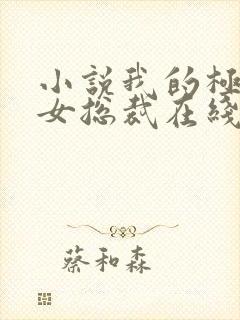 小說我的極
女总裁在綫
蔡和森